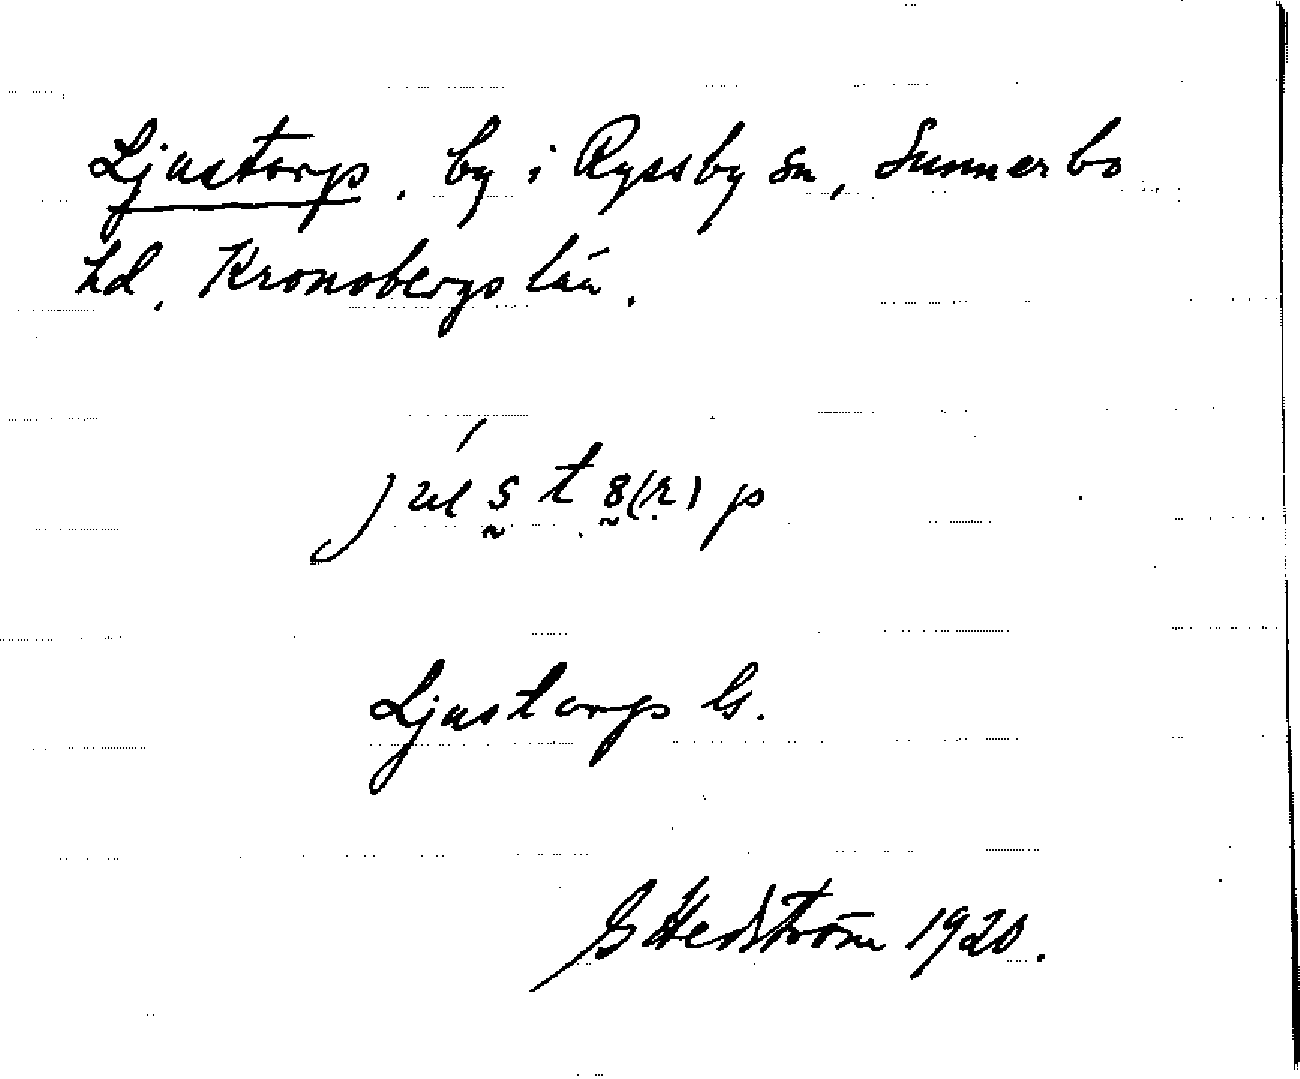 Ljustorp, by i Ryssby sn, Sunnerbo
hd, Kronobergs län.
Ljustorp G.
G Hedström 1920.